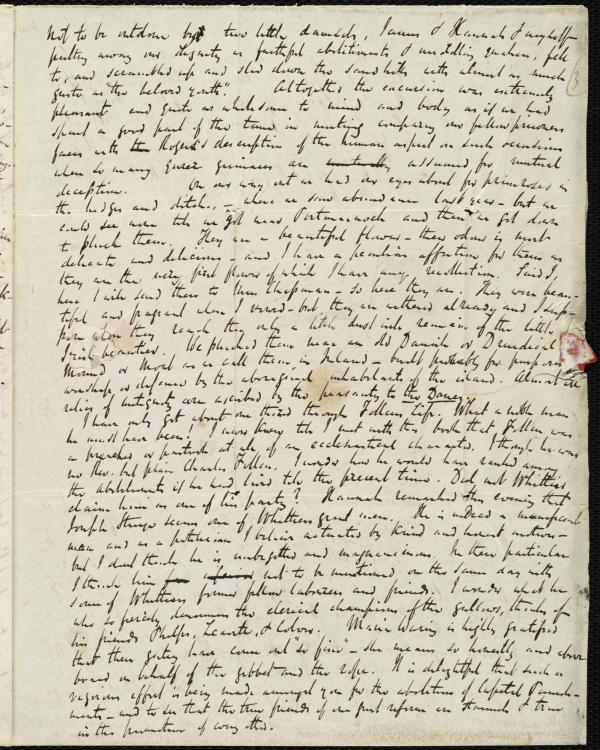 not to be outdone by two little damsels, James & Hannah & myself
putting away our dignity as faithful abolitionists & middling quakers, fell
to, and scrambled up and slid down the sand hills with almost as much
gusto as "the beloved youth". Altogether the excursion was extremely
pleasant and quite as wholesome to mind and body as if we had
spent a good part of the time in meeting comparing our fellow prisoners
faces with Rogers's description of the human aspect on such occasions
when so many queer grimaces are assumed for mutual
deception. On our way out we had our eyes about for primroses in
the hedges and ditches, - where we saw abundance last year - but we
could see none till we got near Portmarnock and then we got down
to pluck them. They are a beautiful flower - their odour is most
delicate and delicious - and I have a peculiar affection for them as
they are the very first flower of which I have any recollection. Said I,
here I will send them to Chapman - so here they are. They were beau-
tiful and fragrant when I viewed - but they are withered already and I sup-
pose when they reach thee only a little dust will remain of the little
Irish beauties. We plucked them near an old Danish or Druidical
Mound or Moat as we call them in Ireland - built probably for purposes
worship or defence by the aboriginal inhabitants of the island. Almost all
relics of antiquity are ascribed by the peasantry to the Danes.
I have only got about one third through Follen's Life. What a noble man
he must have been! I never knew till I met with this book that Follen was
a preacher or partook at all of an ecclesiastical character. I thought he was
no Rev. but plain Charles Follen. I wonder how he would have ranked among
the abolitionists if he had lived till the present time. Did not Whittier
claim him as one of his party? Hannah remarked this evening that
Joseph Sturge seems one of Whittier's great men. He is indeed a munificent
man and as a politician I believe actuated by kind and honest motives -
but I don't think he is unbigotted and magnanimous. In these particulars
I think him not to be mentioned on the same day with
some of Whittier's former fellow laborers and friends. I wonder what he
who so fiercely denounces the clerical champions of the gallows, thinks of
his friends Phelps, Leavitt, & Colver. Maria Waring is highly gratified
that these gentry have come out "so fine" - she means so honestly and above
board in behalf of the gibbet and the rope. It is delightful that such a
vigorous effort is being made amongst you for the abolition of Capital Punish-
ments - and to see that the true friends of one great reform are staunch & true
in the promotion of every other.